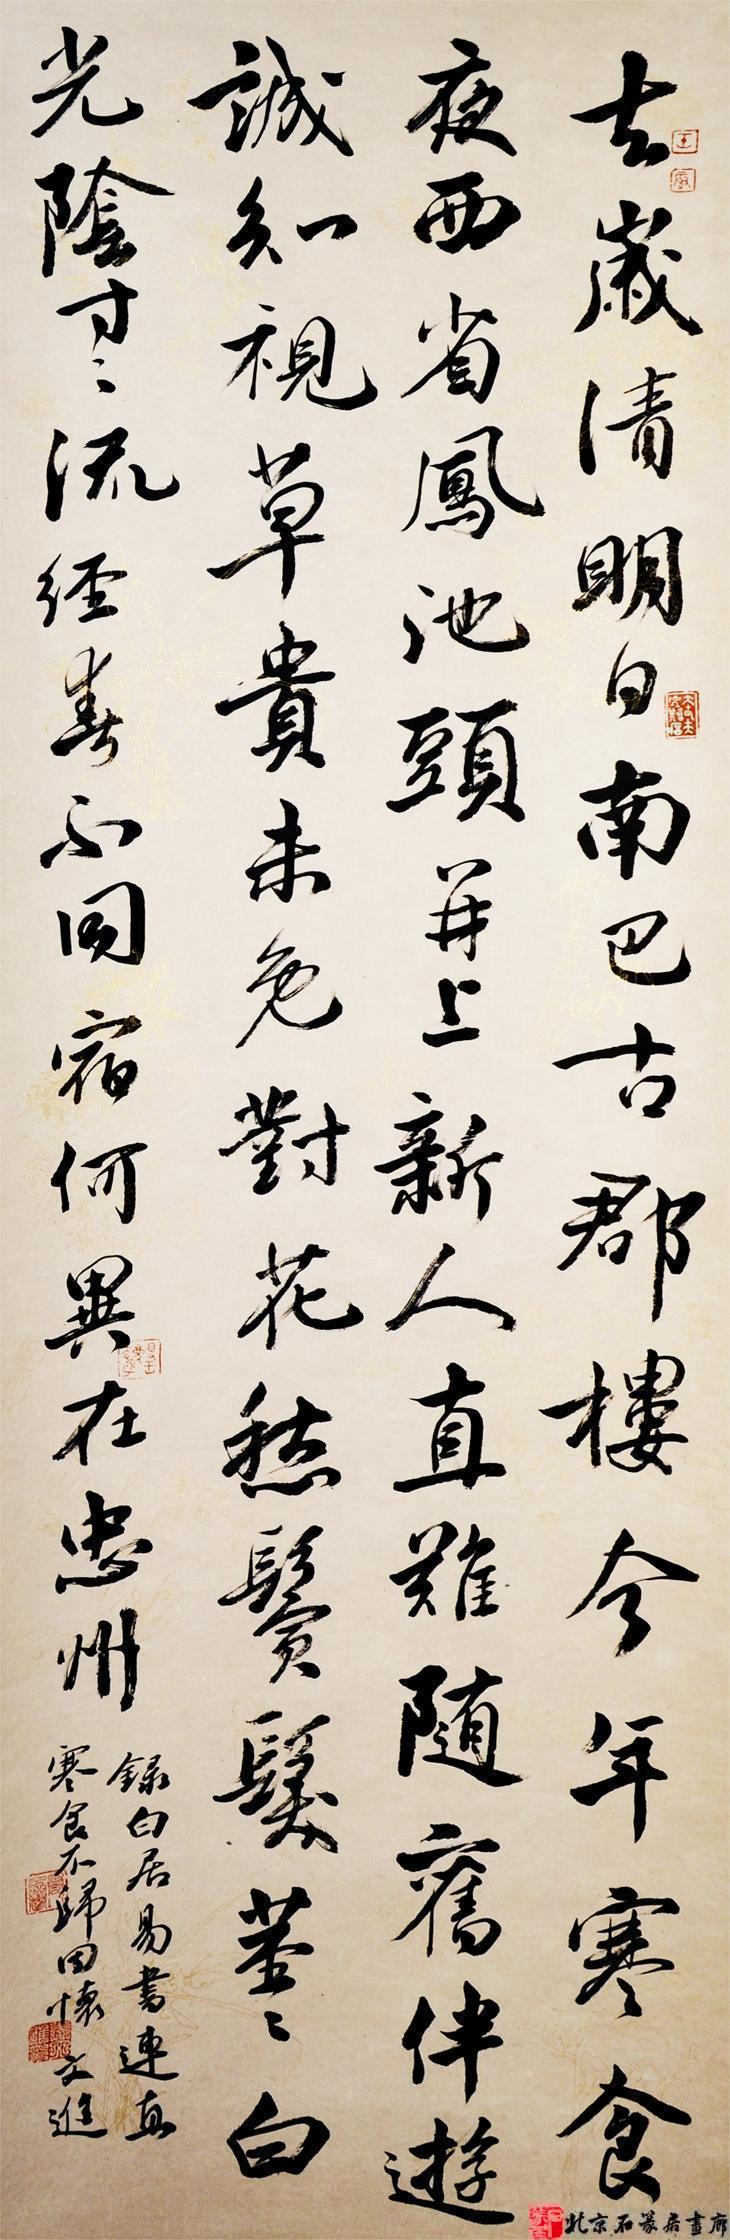 去歲清明日南巴古郡樓今年寒食
夜西省鳳池頭并上新人直難随舊伴遊
誠知視草貴未免對花愁鬢髮莖々白
光陰寸々流經春不同宿何異在忠州
錄白居易書連直
寒食不歸因懷文進
北京石篆居畫廊